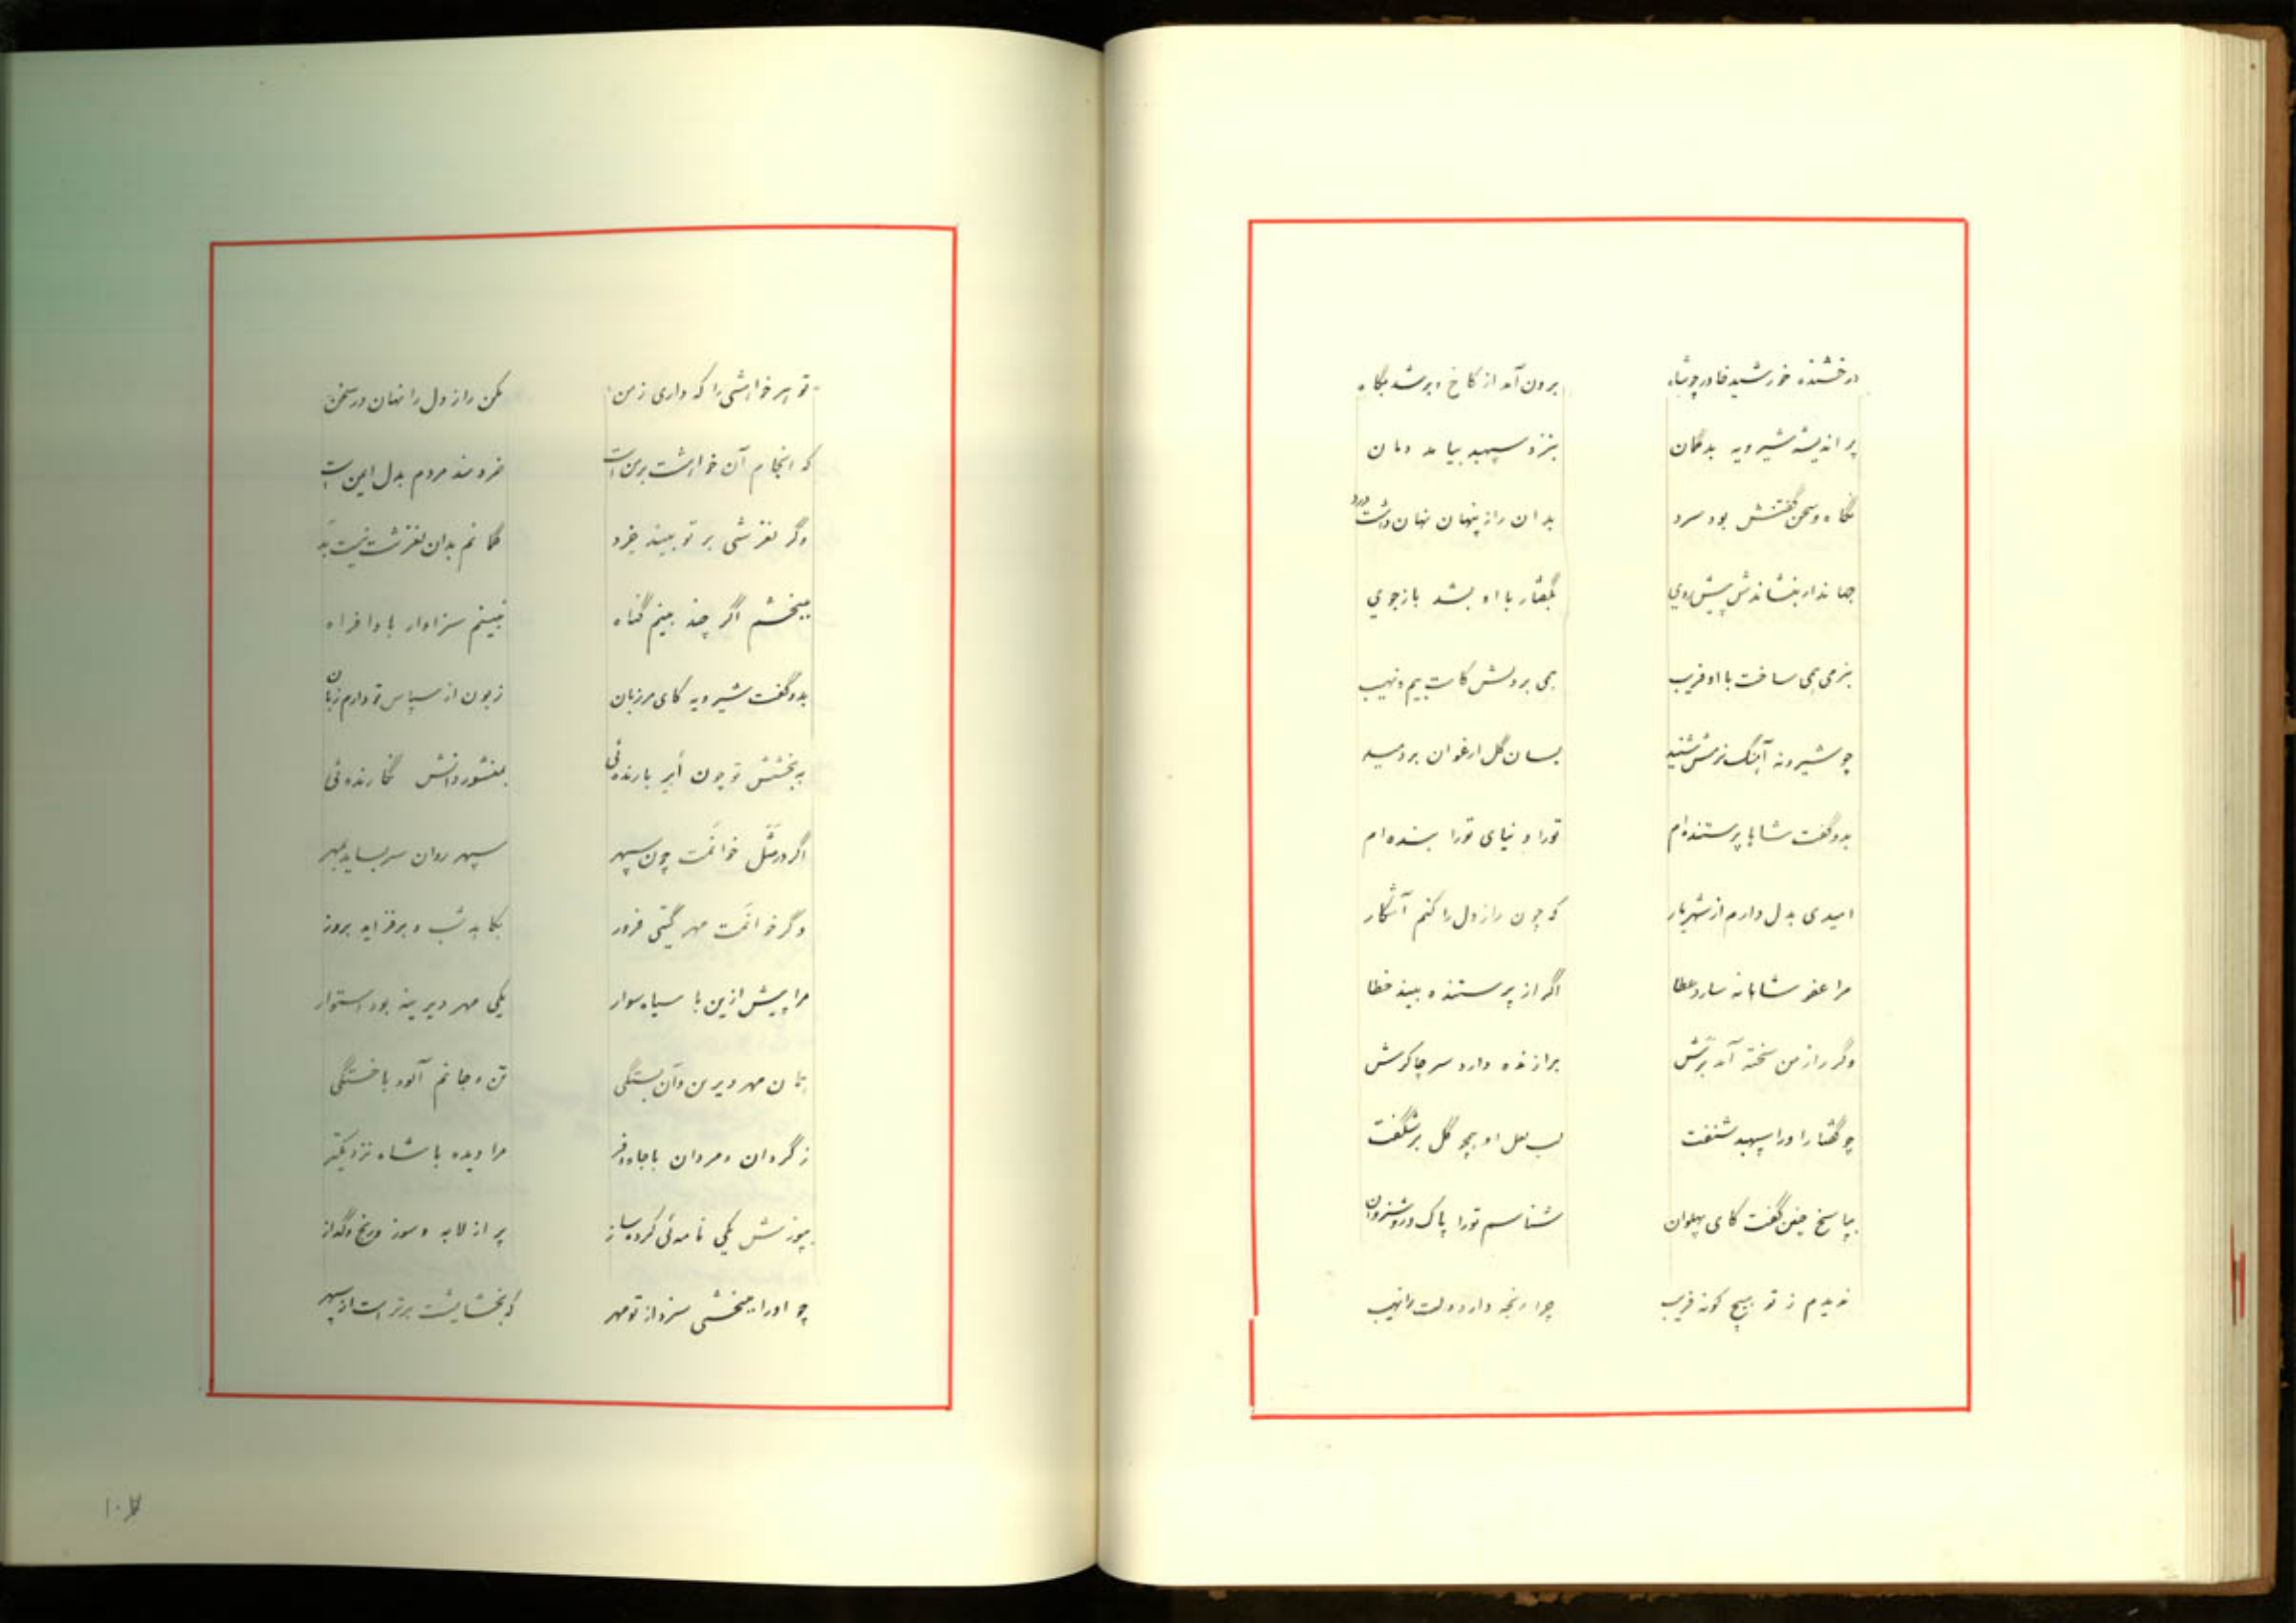 درخشنده خورشید خاور چو شاه برون آمد از کاخ و بر شد بگاه
پر اندیشه شیرویه بدگمان بنزد سپهبد بیامد دمان
نگاه و سخن گفتنش بود سرد بدان راز پنهان نهان داشت درد
جهاندار بنشاندش پیش روی بگفتار با او بشد بازجوی
بنرمی همی ساخت با او فریب همی بر دلش کاست بیم و نهیب
چو شیرویه آهنگ نرمش شنید بسان گل ارغوان بردمید
بدو گفت شاها پرستنده‌ام تورا و نیای تورا بنده‌ام
امیدی بدل دارم از شهریار که چون راز دل را کنم آشکار
مرا عفو شاهانه سازد عطا اگر از پرستنده بیند خطا
وگر راز من سخته آمد برش برازنده دارد سر چاکرش
چو گفتار او را سپهبد شنفت لب لعل او همچو گل برشگفت
بپاسخ چنین گفت کای پهلوان شناسم تورا پاک و روشنروان
ندیدم ز تو هیچ گونه فریب چرا رنجه دارد دلت را نهیب
تو هر خواهشی را که داری ز من مکن راز دل را نهان در سخن
که انجام آن خواهشت بر من است خردمند مردم بدل ایمن است
وگر لغزشی بر تو بیند خرد گمانم بدان لغزشت نیست بد
ببخشم اگر چند بینم گناه نبینم سزاوار بادافراه
بدو گفت شیرویه کای مرزبان زبون از سپاس تو دارم زبان
به بخشش تو چون اَبر بارنده‌ئی بمنشور دانش نگارنده‌ئی
اگر در مَثَل خوانَمت چون سپهر سپهر روان سر بساید بمهر
وگر خوانَمت مهر گیتی فروز بکاهد شب و برفزاید بروز
مرا پیش ازین با سیاه سوار یکی مهر دیرینه بود استوار
بدان مهر دیرین و آن بستگی تن و جانم آلود با خستگی
ز گردان و مردان با جاه و فر مرا دیده با شاه نزدیکتر
بپوزش یکی نامه‌ئی کرده ساز پر از لابه و سوز و رنج و گداز
چو او را ببخشی سزد از تو مهر که بخشایشت برتر است از سپهر